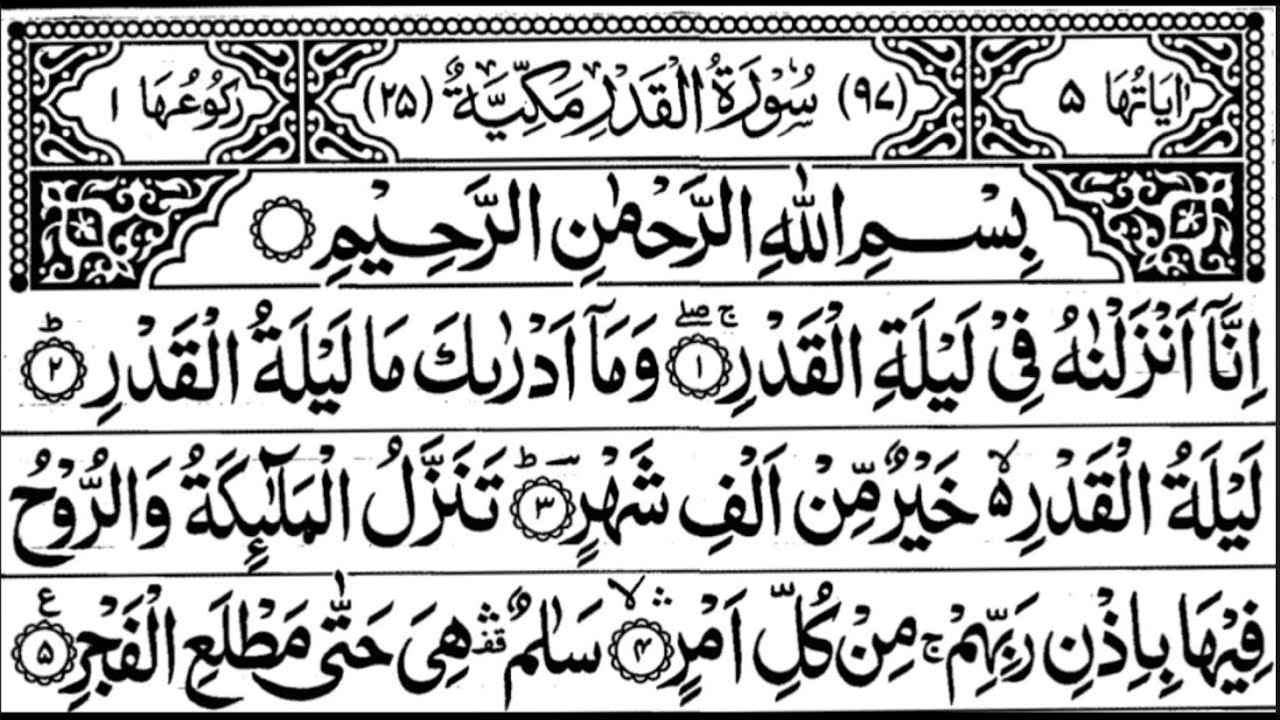 اٰیَاتُهَا ۵ (۹۷) سُوْرَۃُ الْقَدْرِ مَكِّیَّۃٌ (۲۵) رُكُوْعُهَا ۱
بِسْمِ اللّٰهِ الرَّحْمٰنِ الرَّحِیْمِ
اِنَّاۤ اَنْزَلْنٰهُ فِیْ لَیْلَةِ الْقَدْرِ ۚۖ ۱ وَمَاۤ اَدْرٰىكَ مَا لَیْلَةُ الْقَدْرِ ؕ ۲
لَیْلَةُ الْقَدْرِ ۙ۬ خَیْرٌ مِّنْ اَلْفِ شَهْرٍ ؕؔ ۳ تَنَزَّلُ الْمَلٰٓىِٕكَةُ وَالرُّوْحُ
فِیْهَا بِاِذْنِ رَبِّهِمْ ۚ مِنْ كُلِّ اَمْرٍ ۙۛ ۴ سَلٰمٌ ۛ۫ هِیَ حَتّٰى مَطْلَعِ الْفَجْرِ ۵ ع